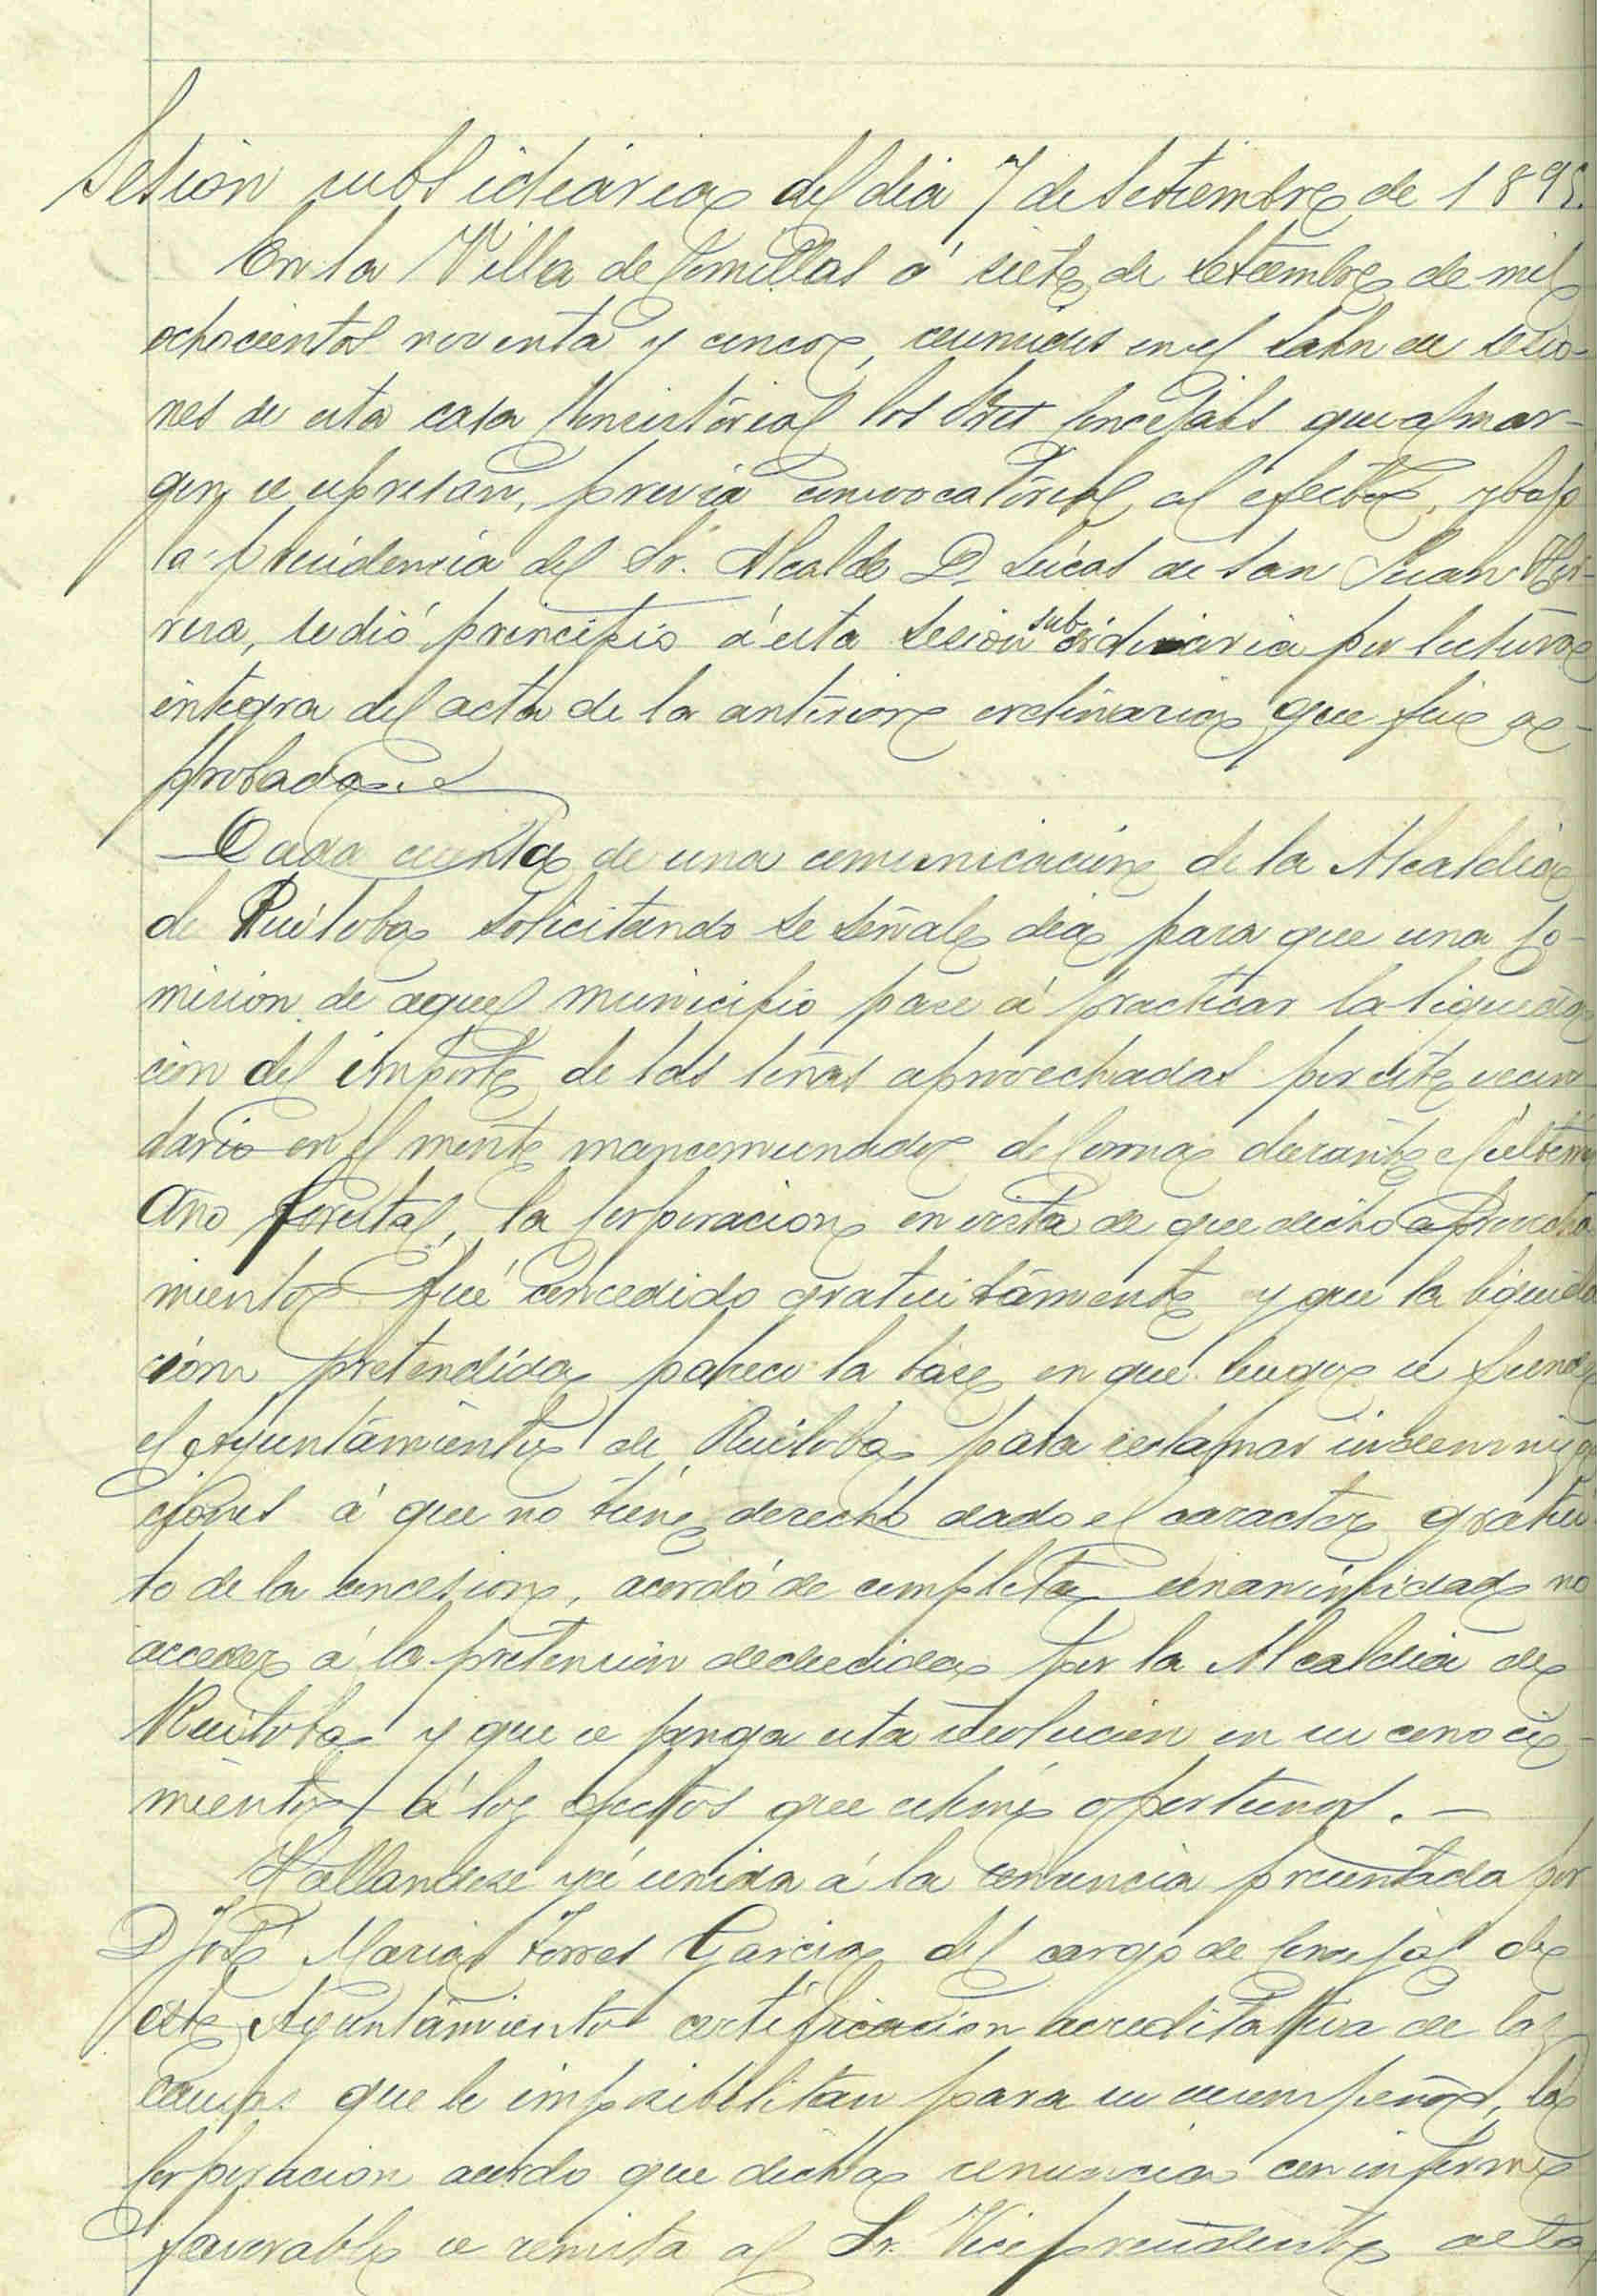 Sesion subsidiaria del dia 7 de Setiembre de 1895.
En la Villa de Comillas á siete de Setiembre de mil
ochocientos noventa y cinco, reunidos en el Salon de sesio-
nes de esta casa Consistorial los Sres Concejales que al mar-
gen se espresan, previa convocatoria al efecto, y bajo
la presidencia del Sr. Alcalde D. Lúcas de San Juan Her-
rera, se dió principio á esta Sesion subsidiaria por lectura
integra del acta de la anterior ordinaria que fue a-
probada.
Dada cuenta de una comunicacion de la Alcaldia
de Ruiloba solicitando se señale dia para que una Co-
mision de aquel municipio pase á practicar la liquida
cion del importe de las leñas aprovechadas por este vecin
dario en el monte mancomunado de Corona durante el último
Año forestal, la Corporacion en vista de que dicho aprovecha
miento fué concedido gratuitamente y que la liquida
cion pretendida parece la base en que luego se funde
el Ayuntamiento de Ruiloba para reclamar indemniza
ciones á que no tiene derecho dado el caracter gratui
to de la concesion, acordó de completa unanimidad no
acceder á la pretension deducida por la Alcaldia de
Ruiloba y que se ponga esta resolucion en su conoci-
miento á los efectos que estime oportunos.
Hallandose yá unida á la renuncia presentada por
D José Maria Torres Garcia del cargo de Concejal de
este Ayuntamiento certificacion acreditativa de las
causas que le imposibilitan para su desempeño, la
Corporacion acordo que dicha renuncia con informe
favorable se remita al Sr. Vicepresidente de la